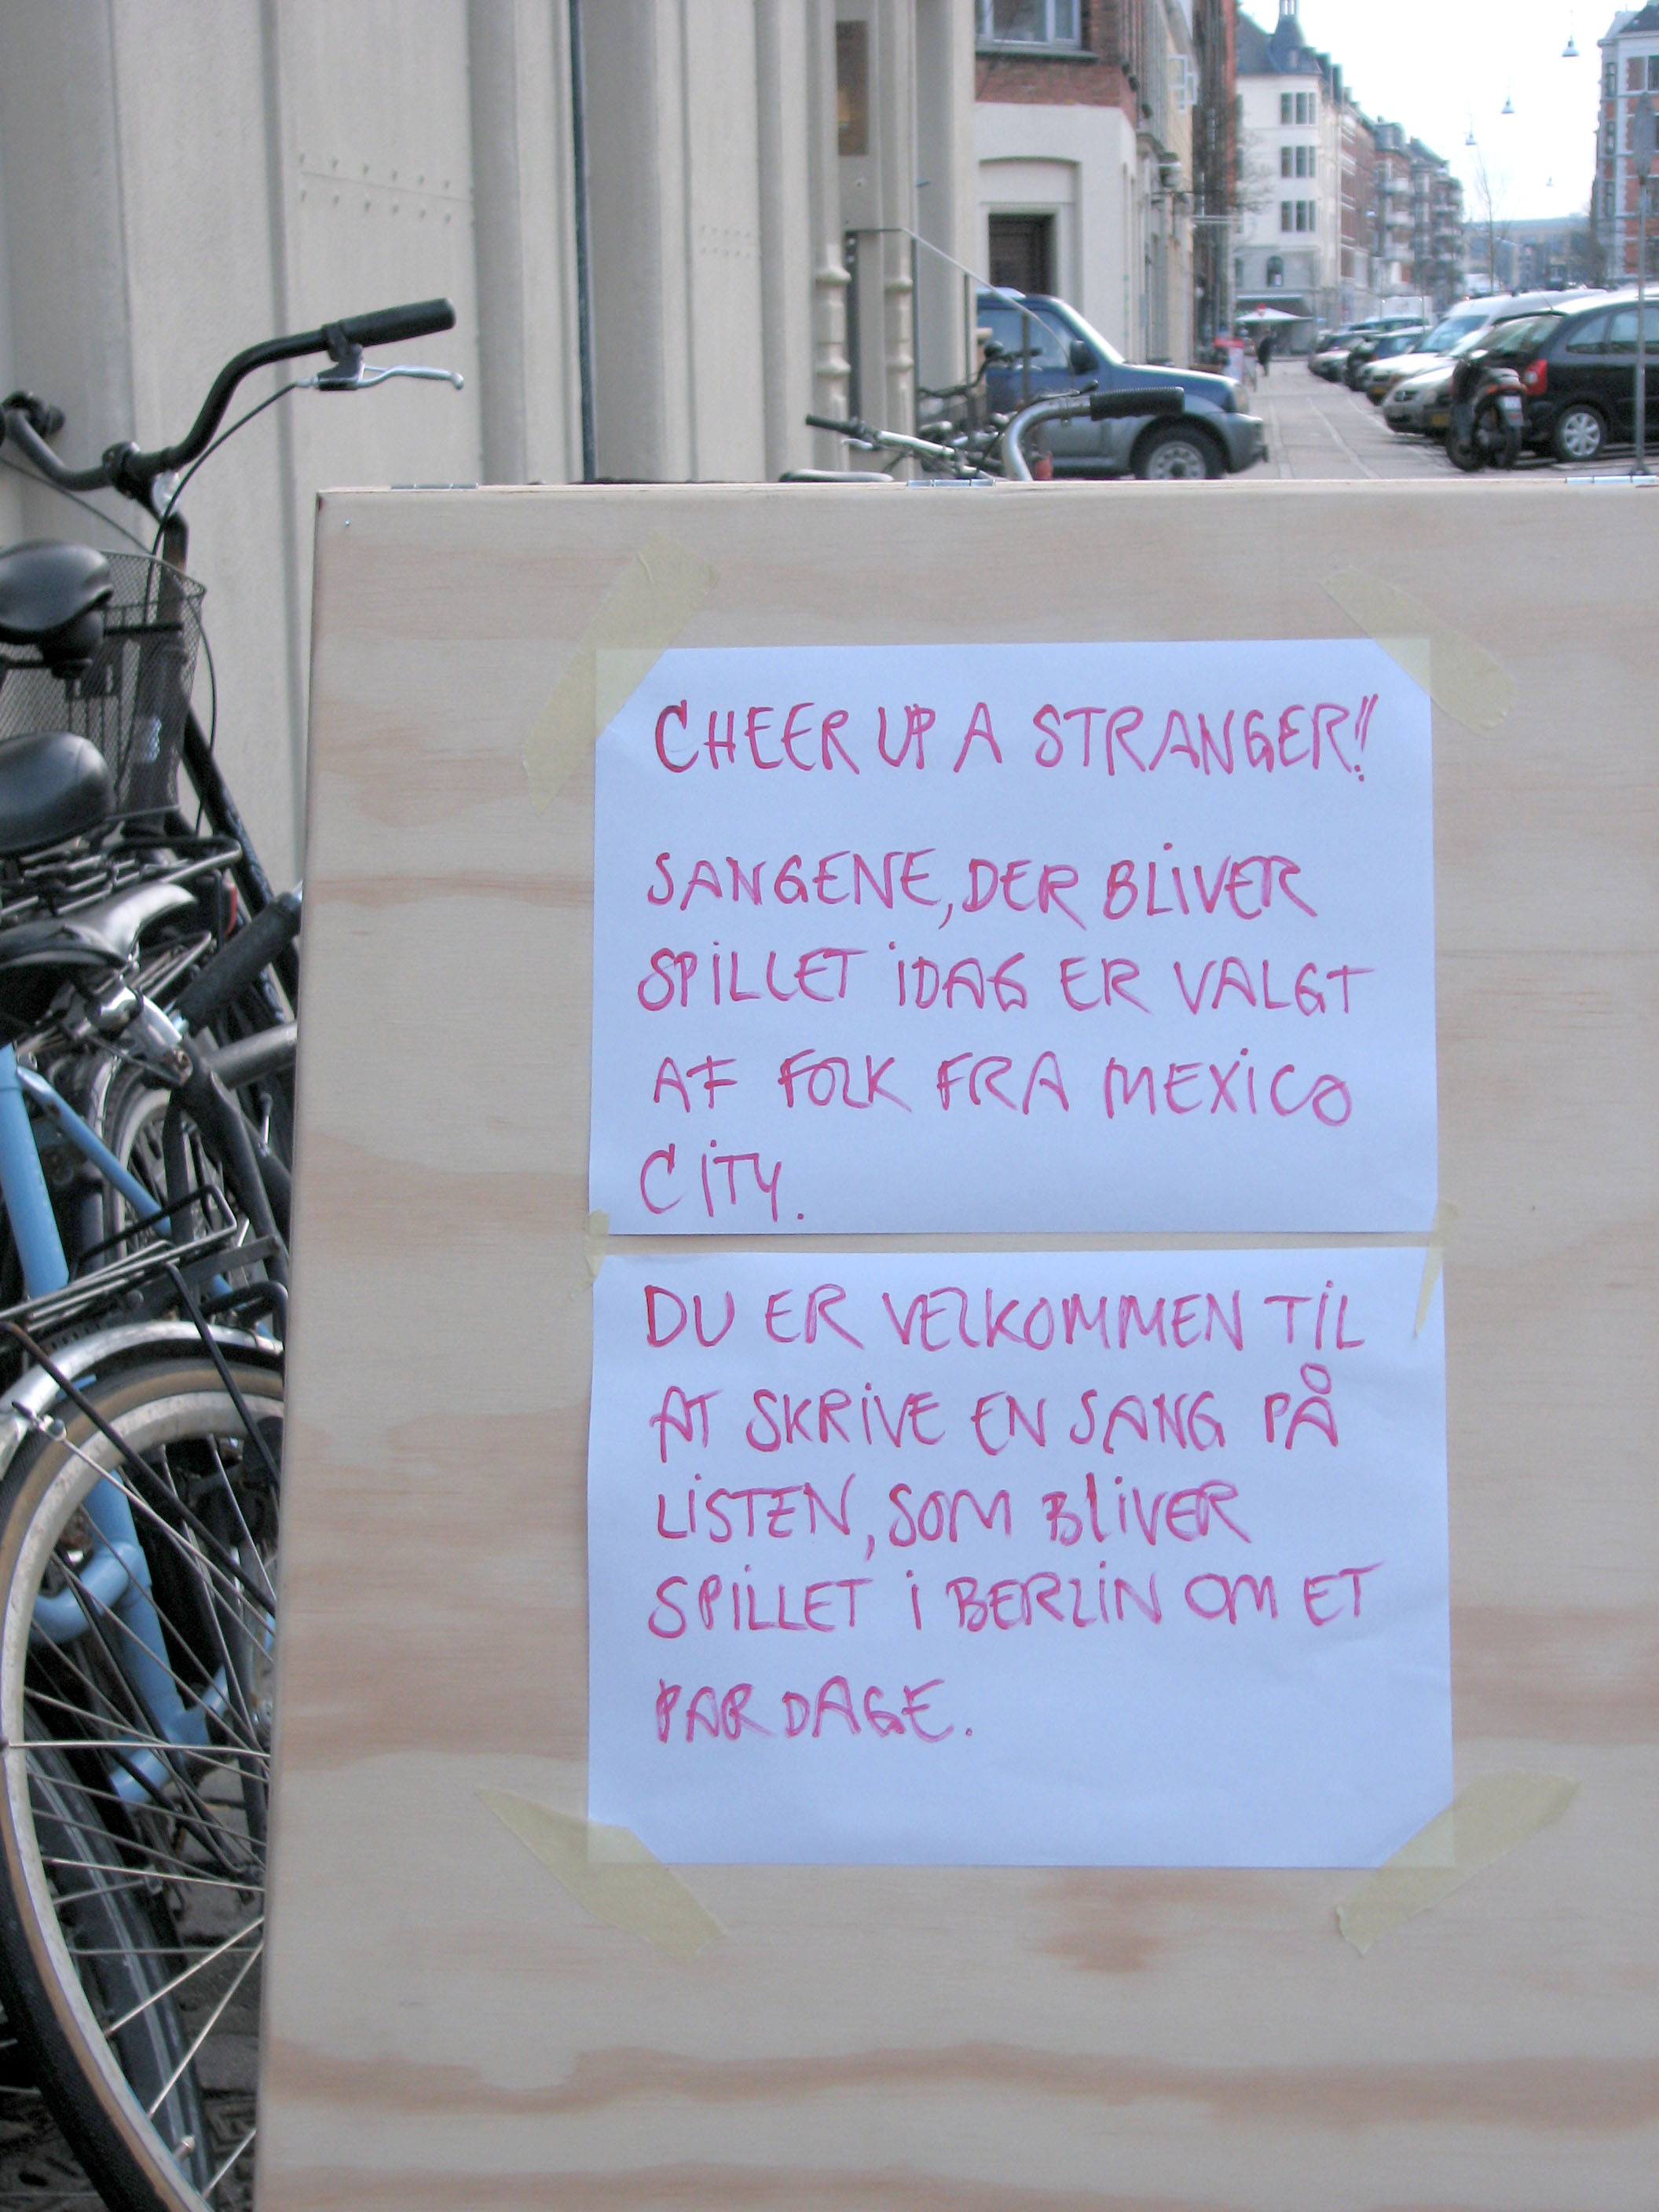 CHEER UP A STRANGER!!
SANGENE, DER BLIVER
SPILLET IDAG ER VALGT
AF FOLK FRA MEXICO
CITY.
DU ER VELKOMMEN TIL
AT SKRIVE EN SANG PÅ
LISTEN, SOM BLIVER
SPILLET I BERLIN OM ET
PAR DAGE.